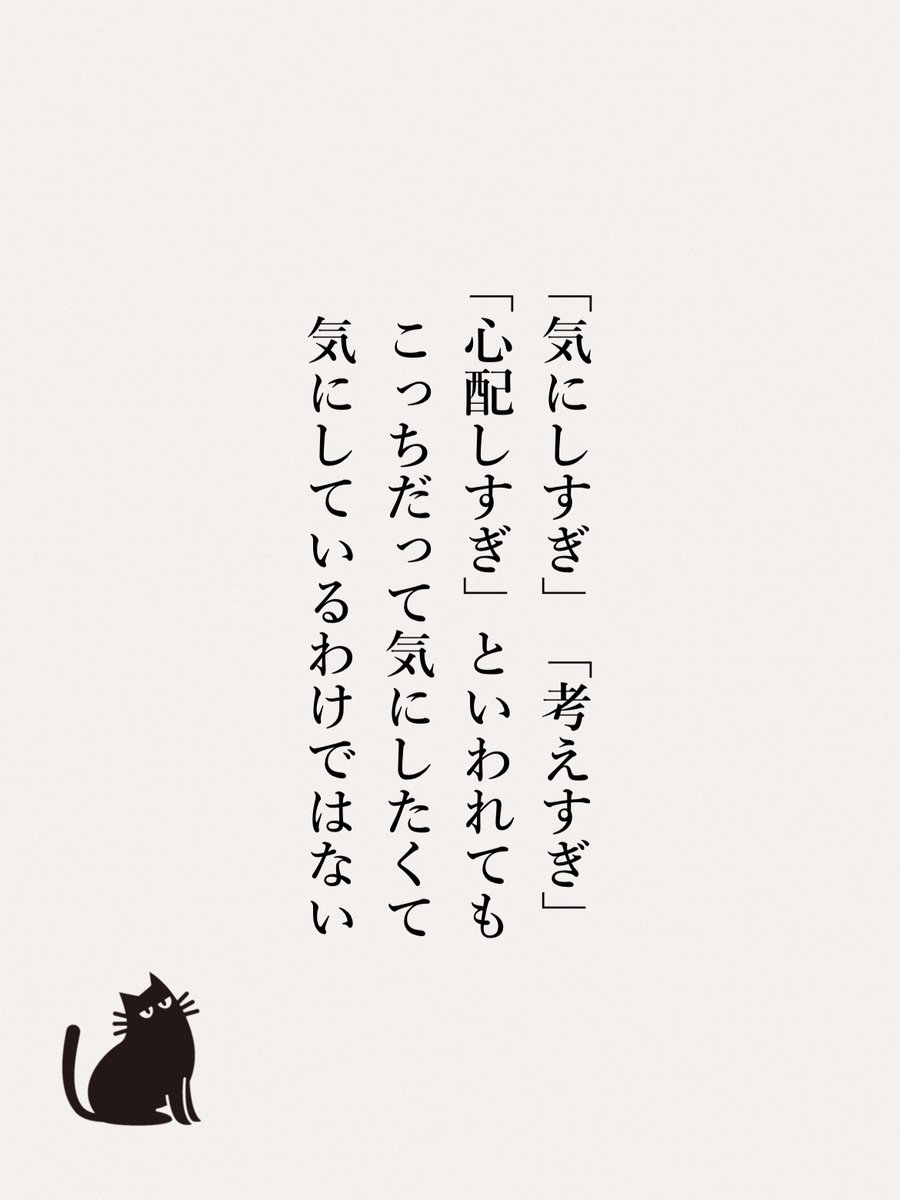 「気にしすぎ」「考えすぎ」
「心配しすぎ」といわれても
こっちだって気にしたくて
気にしているわけではない